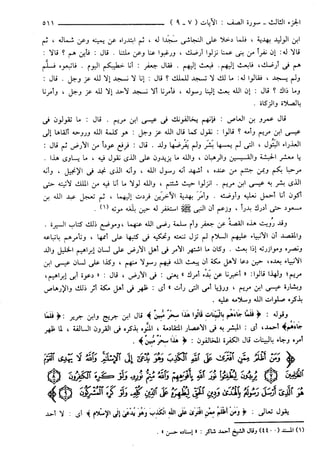 الجزء الثالث - سورة الصف : الآيات ( ٧ - ٩ ) ٥١١
ابن الوليد بهدية ، فلما دخلا على النجاشي سجدا له ، ثم ابتدراه عن يمينه وعن شماله ، ثم
قالا له : إن نفراً من بني عمنا نزلوا أرضك ، ورغبوا عنا وعن ملتنا . قال : فأين هم ؟ قالا :
هم في أرضك ، فابعث إليهم . فبعث إليهم . فقال جعفر : أنا خطيبكم اليوم . فاتبعوه فسلَّم
ولم يسجد ، فقالوا له : ما لك لا تسجد للملك ؟ قال : إنا لا نسجد إلا لله عز وجل . قال :
وما ذاك ؟ قال : إن الله بعث إلينا رسوله ، فأمرنا ألا نسجد لأحد إلا لله عز وجل ، وأمرنا
بالصلاة والزكاة .
قال عمرو بن العاص : فإنهم يخالفونك في عيسى ابن مريم . قال : ما تقولون في
عيسى ابن مريم وأمه ؟ قالوا : نقول كما قال الله عز وجل : هو كلمة الله وروحه ألقاها إلى
العذراء البتول ، التي لم يمسها بشر ولم يَفْرِضْها ولد . قال : فرفع عوداً من الأرض ثم قال :
يا معشر الحبشة والقسيسين والرهبان ، والله ما يزيدون على الذي نقول فيه ، ما يساوى هذا .
مرحبا بكم وبمن جئتم من عنده ، أشهد أنه رسول الله ، وأنه الذي نجد في الإنجيل ، وأنه
الذي بشر به عيسى ابن مريم . انزلوا حيث شئتم ، والله لولا ما أنا فيه من الملك لأتيته حتى
أكون أنا أحمل نعليه وأوضئه . وأمرَ بهدية الآخرَين فردت إليهما ، ثم تعجل عبد الله بن
مسعود حتى أدرك بدراً ، وزعم أن النبي ﷺ استغفر له حين بلغه موته (١) .
وقد رُويت هذه القصةُ عن جعفر وأم سلمة رضى الله عنهما ، وموضع ذلك كتاب السيرة .
والمقصد أن الأنبياء عليهم السلام لم تزل تنعته وتحكيه في كتبها على أممها ، وتأمرهم باتباعه
ونصره وموازرته إذا بعث . وكان ما اشتهر الأمر في أهل الأرض على لسان إبراهيم الخليل والد
الأنبياء بعده ، حين دعا لأهل مكة أن يبعث الله فيهم رسولا منهم ، وكذا على لسان عيسى ابن
مريم ؛ ولهذا قالوا : « أخبرنا عن بَدْء أمرك » يعني : في الأرض ، قال : « دعوة أبي إبراهيم ،
وبشارة عيسى ابن مريم ، ورؤيا أمي التي رأت » أي : ظهر في أهل مكة أثر ذلك والإرهاص
بذكره صلوات الله وسلامه عليه .
وقوله : ﴿ فَلَمَّا جَاءَهُم بِالْبَيِّنَاتِ قَالُوا هَذَا سِحْرٌ مُّبِينٌ ﴾ قال ابن جريج وابن جرير : ﴿ فَلَمَّا
جَاءَهُم ﴾ أحمد ، أي : المبشر به في الأعصار المتقادمة ، المنوّه بذكره في القرون السالفة ، لما ظهر
أمره وجاء بالبينات قال الكفرة المخالفون : ﴿ هَذَا سِحْرٌ مُّبِينٌ ﴾ .
﴿ وَمَنْ أَظْلَمُ مِمَّنِ افْتَرَى عَلَى اللَّهِ الْكَذِبَ وَهُوَ يُدْعَى إِلَى الْإِسْلَامِ وَاللَّهُ لَا يَهْدِي
الْقَوْمَ الظَّالِمِينَ ۝ يُرِيدُونَ لِيُطْفِئُوا نُورَ اللَّهِ بِأَفْوَاهِهِمْ وَاللَّهُ مُتِمُّ نُورِهِ وَلَوْ كَرِهَ الْكَافِرُونَ ۝
هُوَ الَّذِي أَرْسَلَ رَسُولَهُ بِالْهُدَى وَدِينِ الْحَقِّ لِيُظْهِرَهُ عَلَى الدِّينِ كُلِّهِ وَلَوْ كَرِهَ الْمُشْرِكُونَ ۝ ﴾
يقول تعالى : ﴿ وَمَنْ أَظْلَمُ مِمَّنِ افْتَرَى عَلَى اللَّهِ الْكَذِبَ وَهُوَ يُدْعَى إِلَى الْإِسْلَامِ ﴾ أي : لا أحد
(١) المسند (٤٤٠٠) وقال الشيخ أحمد شاكر : « إسناده حسن » .